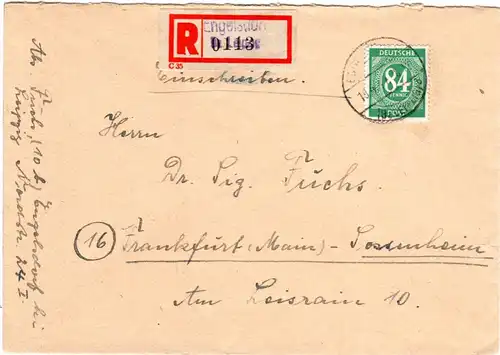 Engelsdorf
R
0143
C 35
Einschreiben.
DEUTSCHE
84
PFENNIG
POST
Herrn
Dr. Sig. Fuchs.
16
Frankfurt (Main) - Sossenheim
Am Leisrain 10.
Abs. Fuchs, (10 b) Engelsdorf bei
Leipzig Nordstr. 24 I.